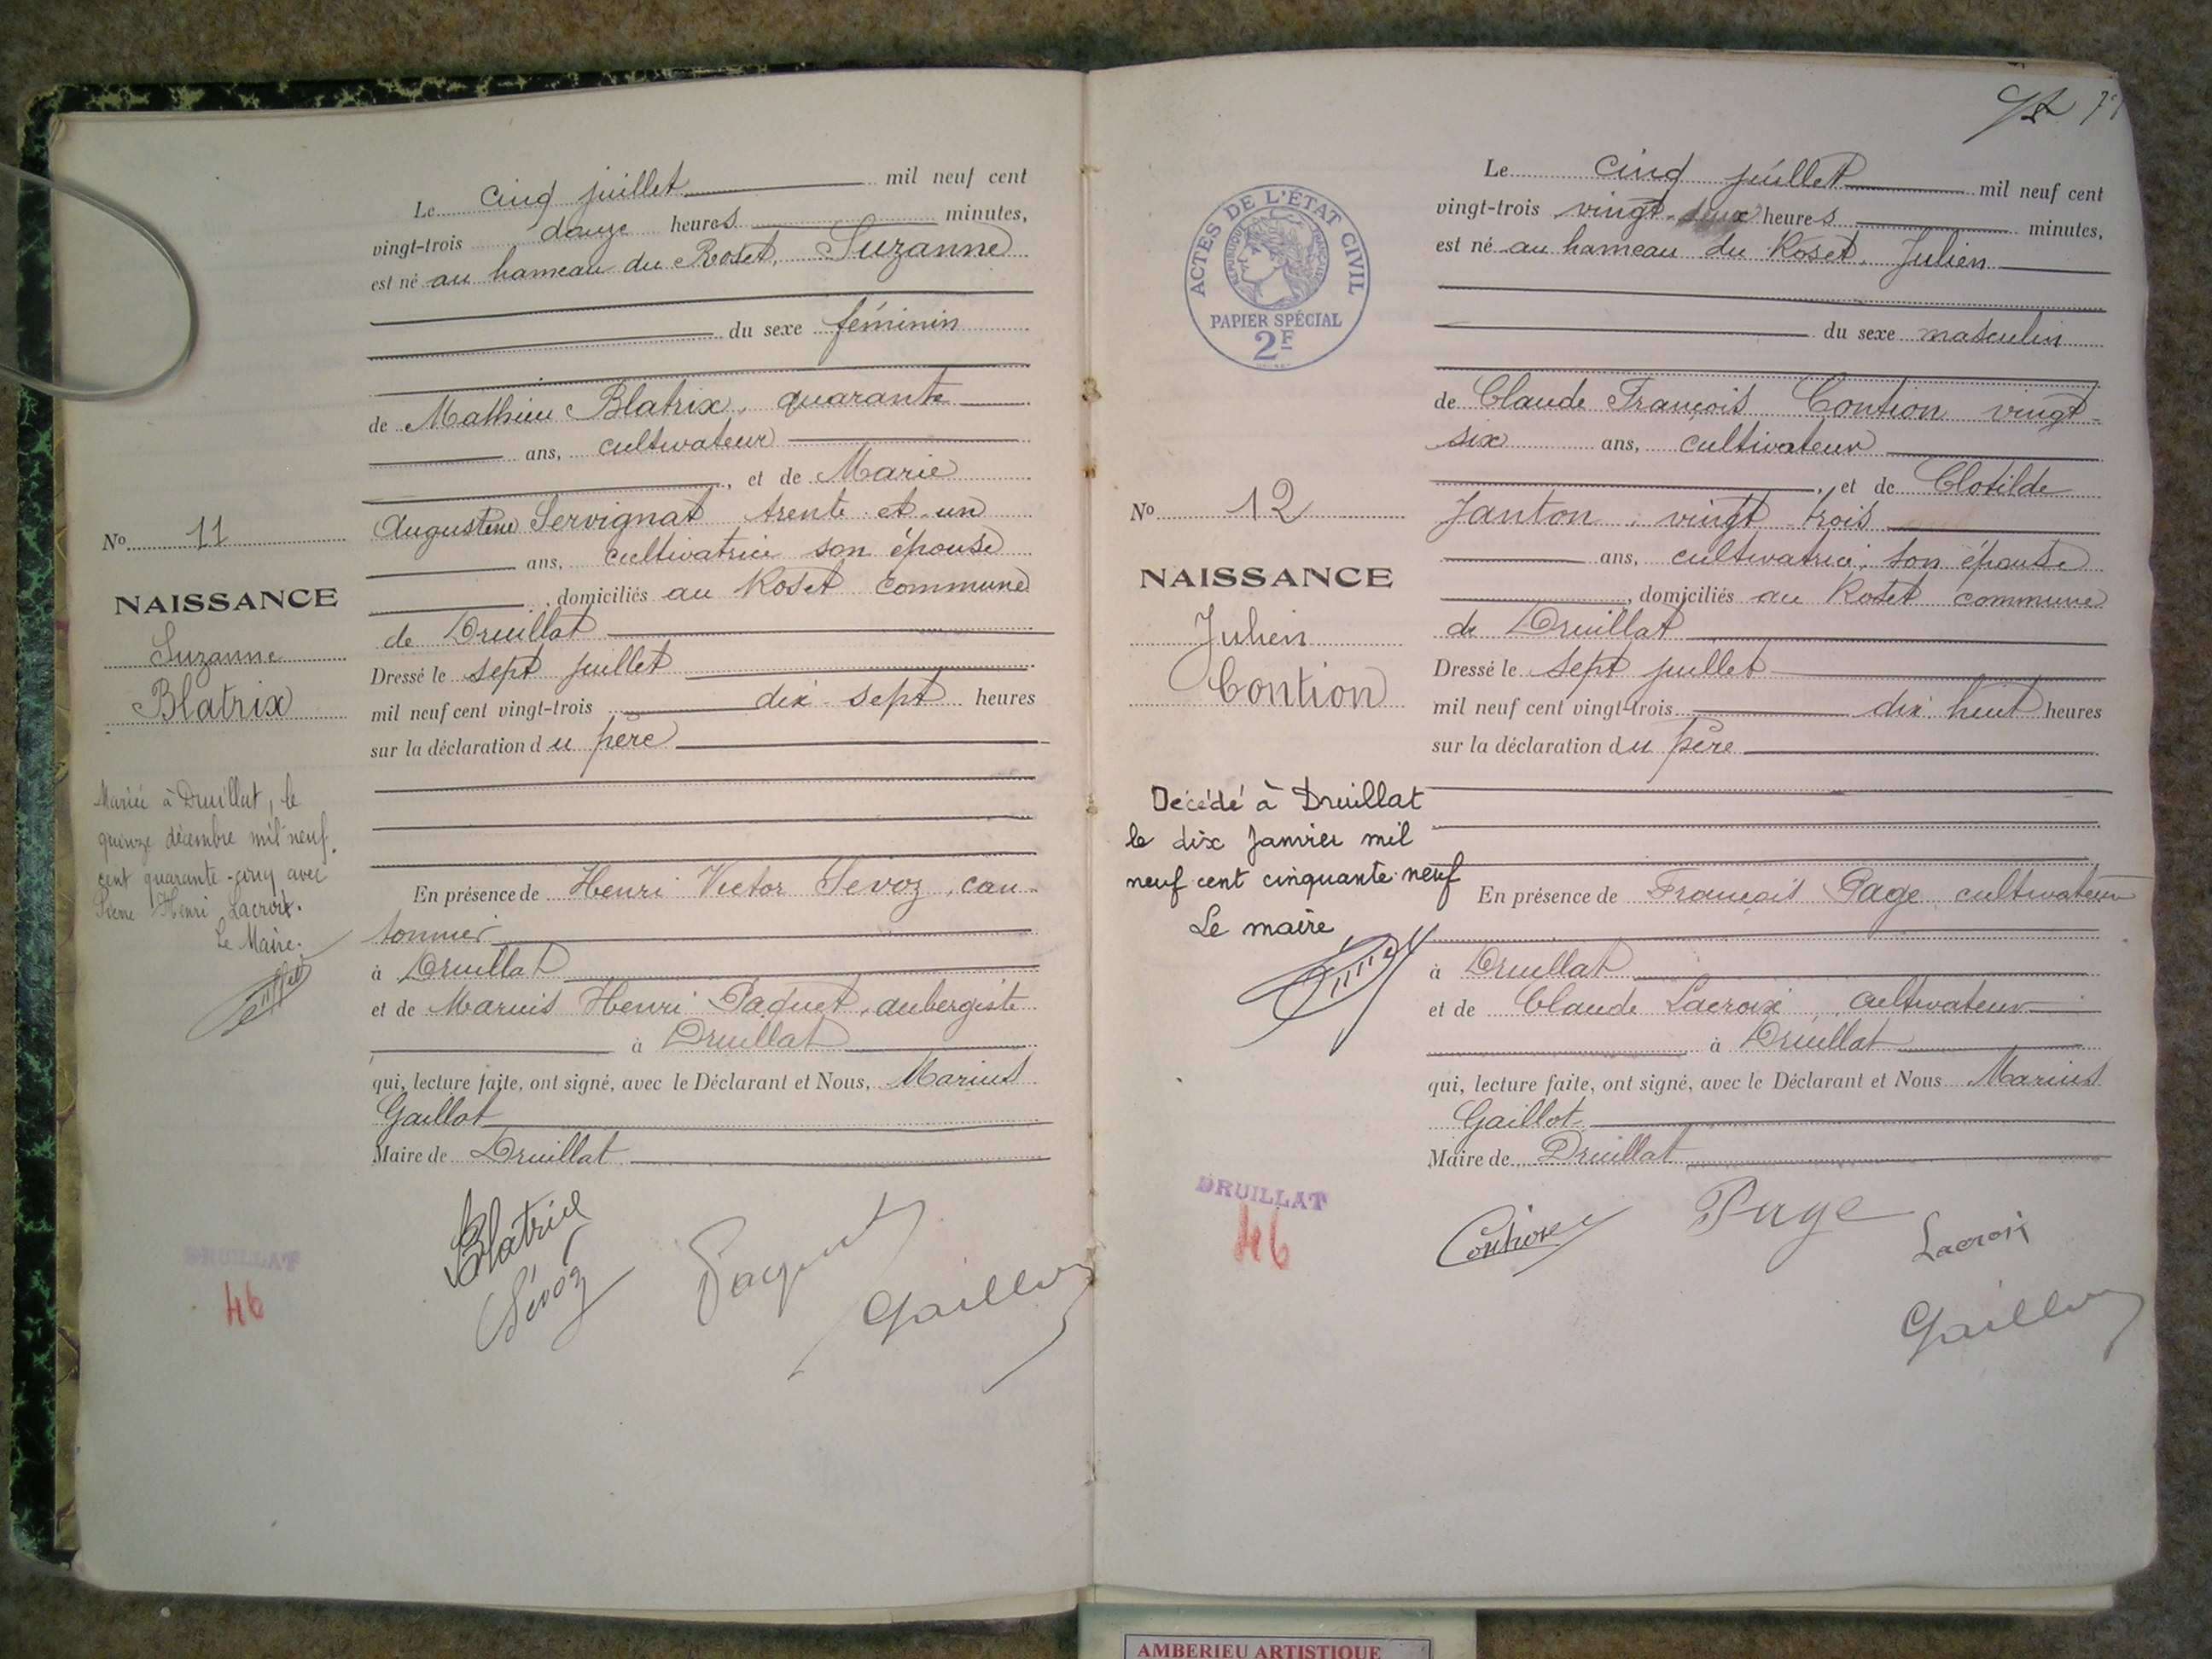 Le cinq juillet mil neuf cent
vingt-trois douze heures minutes,
est né au hameau du Roset, Suzanne
du sexe féminin
de Mathieu Blatrix, quarante
ans, cultivateur
, et de Marie
Augustine Servignat trente et un
ans, cultivatrice son épouse
, domiciliés au Roset commune
de Druillat
Dressé le sept juillet
mil neuf cent vingt-trois dix-sept heures
sur la déclaration du père
En présence de Henri Victor Sevoz, can-
tonnier
à Druillat
et de Marius Henri Paquet, aubergiste
à Druillat
qui, lecture faite, ont signé, avec le Déclarant et Nous, Marius
Gaillot
Maire de Druillat
No 11
NAISSANCE
Suzanne
Blatrix
Mariée à Druillat, le
quinze décembre mil neuf
cent quarante-cinq avec
Henri Lacroix.
Le Maire.
Blatrix
Sévoz
Paquet
Gaillot
DRUILLAT
46
ACTES DE L'ÉTAT CIVIL
RÉPUBLIQUE FRANÇAISE
PAPIER SPÉCIAL
2F
Le cinq juillet mil neuf cent
vingt-trois vingt-deux heures minutes,
est né au hameau du Roset, Julien
du sexe masculin
de Claude François Contion vingt-
six ans, cultivateur
, et de Clotilde
Janton, vingt-trois
ans, cultivatrice, son épouse
, domiciliés au Roset commune
de Druillat
Dressé le sept juillet
mil neuf cent vingt-trois dix-huit heures
sur la déclaration du père
En présence de François Page, cultivateur
à Druillat
et de Claude Lacroix, cultivateur
à Druillat
qui, lecture faite, ont signé, avec le Déclarant et Nous Marius
Gaillot
Maire de Druillat
No 12
NAISSANCE
Julien
Contion
Décédé à Druillat
le dix Janvier mil
neuf cent cinquante-neuf
Le maire
Contion
Page
Lacroix
Gaillot
DRUILLAT
46
AMBERIEU ARTISTIQUE